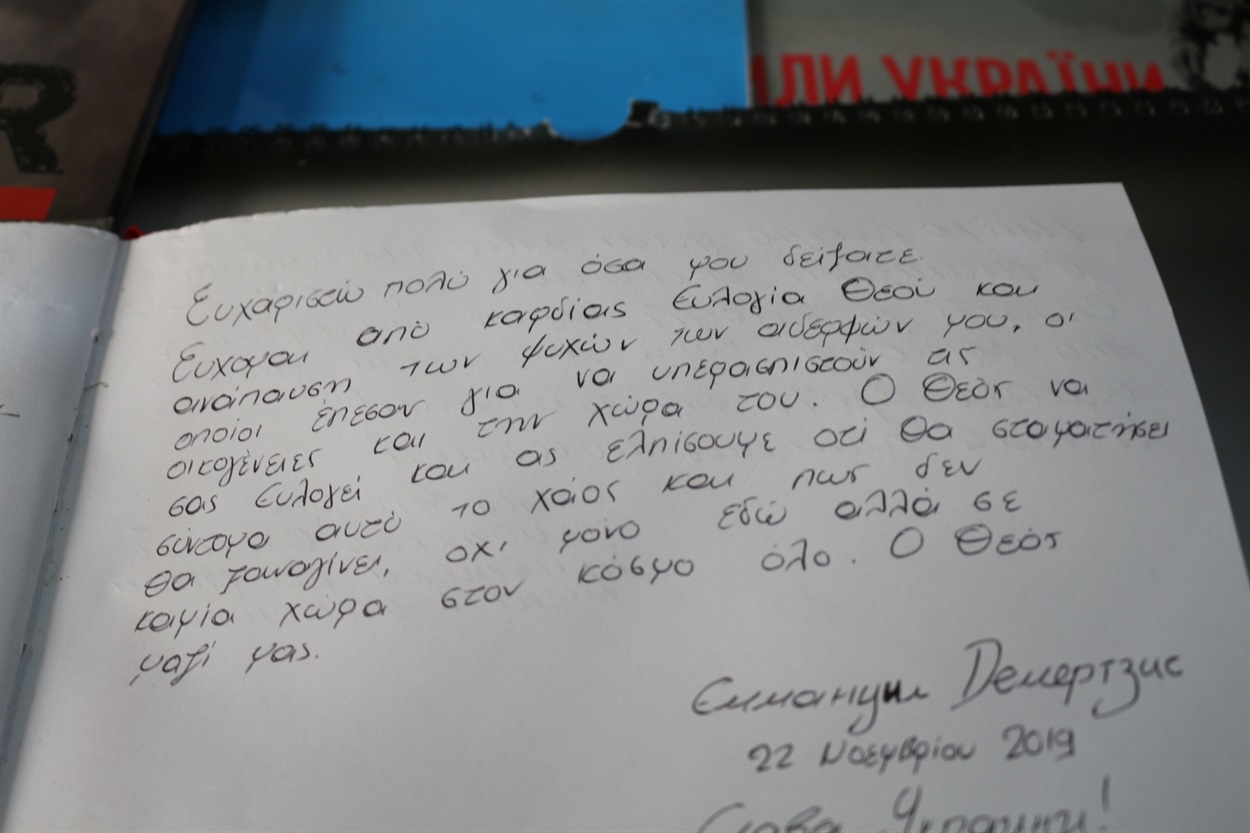 R
ИЛИ УКРАЇНИ
Ευχαριστώ πολύ για όσα μου δείξατε.
Εύχομαι από καρδίας ευλογία Θεού και
ανάπαυση των ψυχών των αδερφών μου, οι
οποίοι έπεσαν για να υπερασπιστούν τις
οικογένειες και την χώρα του. Ο Θεός να
σας ευλογεί και ας ελπίσουμε οτι θα σταματήσει
σύντομα αυτό το χάος και πως δεν
θα ξαναγίνει, οχι μόνο εδώ αλλά σε
καμία χώρα στον κόσμο όλο. Ο Θεός
μαζί μας.
Еммануил Демертзис
22 Νοεμβρίου 2019
Слава Україні!